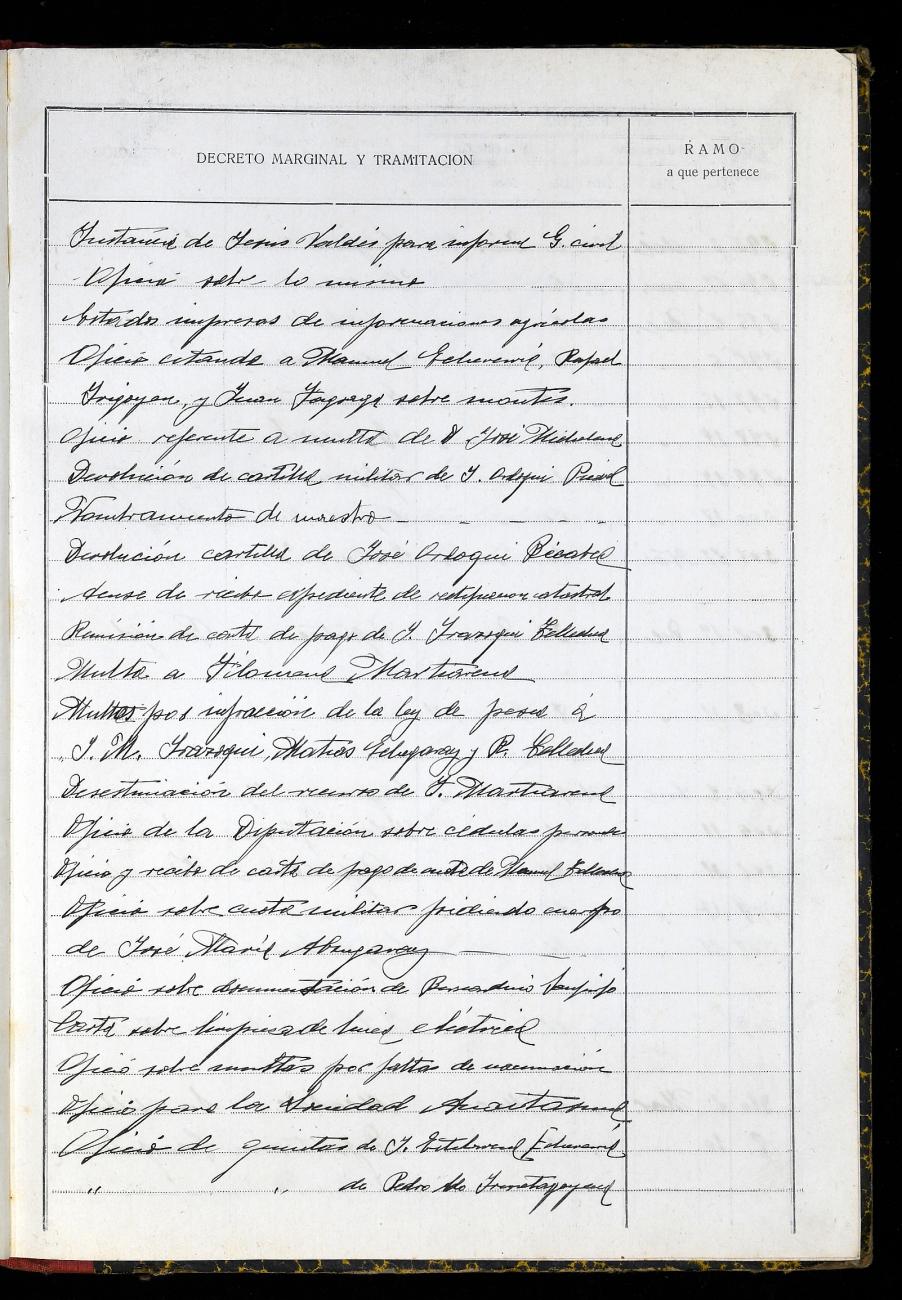 DECRETO MARGINAL Y TRAMITACION
RAMO
a que pertenece
Instancia de Jesús Valdés para informe G. civil
Oficio sobre lo mismo
Estados impresos de informaciones agrícolas
Oficio citando a Manuel Echeverria, Rafael
Irigoyen, y Juan sobre montes.
Oficio referente a multa de José
Devolución de cartilla militar de J. Ardoqui
Nombramiento de maestro
Devolución cartilla de José Ardoqui
Acuse de recibo expediente de catastral
Remisión de carta de pago de J. Irazoqui Telleches
Multa a Filomena Martiarena
Multas por infracción de la ley de pesca á
J. M. Irazoqui, Matias Echegaray y P. Tellechea
Desestimación del recurso de F. Martiarena
Oficio de la Diputación sobre cédulas personales
Oficio y recibo de carta de pago de de Manuel
Oficio sobre cuota militar pidiendo cuerpo
de José Maria
Oficio sobre documentación de Bernardino
Carta sobre limpiesa de linea eléctrica
Oficio sobre multas por faltas de vacunación
Oficio para la Sociedad
Oficio de quintas de J. Echeverria
" " de Pedro